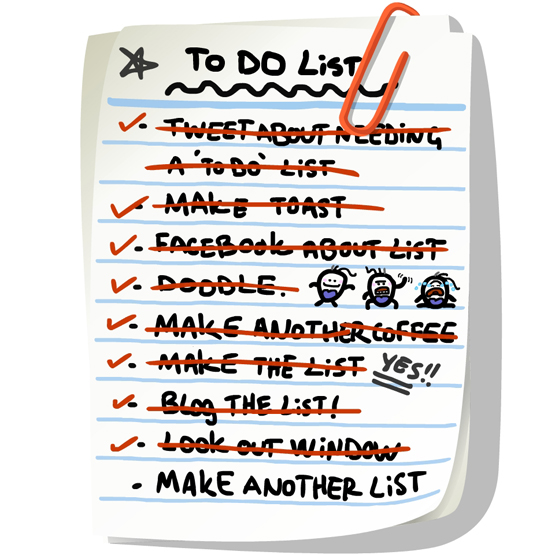 TO DO LIST
- TWEET ABOUT NEEDING
A 'TO DO' LIST
- MAKE TOAST
- FACEBOOK ABOUT LIST
- DOODLE.
- MAKE ANOTHER COFFEE
- MAKE THE LIST YES!!
- BLOG THE LIST!
- LOOK OUT WINDOW
- MAKE ANOTHER LIST